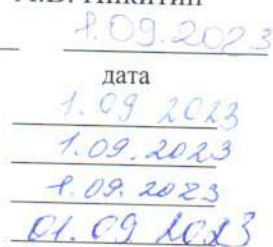 Никитин
1.09.2023
дата
1.09 2023
1.09.2023
1.09.2023
01.09 2023